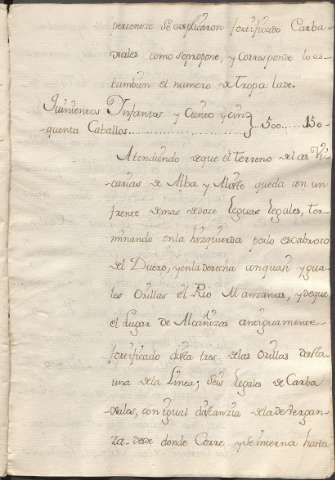 se fortificado Carba-
xales como se propone, y corresponde lo es
tambien el numero de Tropa la de.
Quinientos Infantes y Ciento y cin-
quenta Caballos.................. } 500....150-
Atendiendo a que el terreno de las Vi-
carias de Alba y Aliste queda con un
frente de mas de doce leguas legales, ter-
minando en la hizquierda por lo escabroso
del Duero, y en la derecha con guari y gua-
les Orillas el Rio Manzanas, y de que
el Lugar de Alcañizas antiguamente
fortificado dista tres de las Orillas o de la
una de la Linea, seis legales de Carba
xales, con igual distancia de la de Bergan-
za desde donde Corre, y se interna hasta